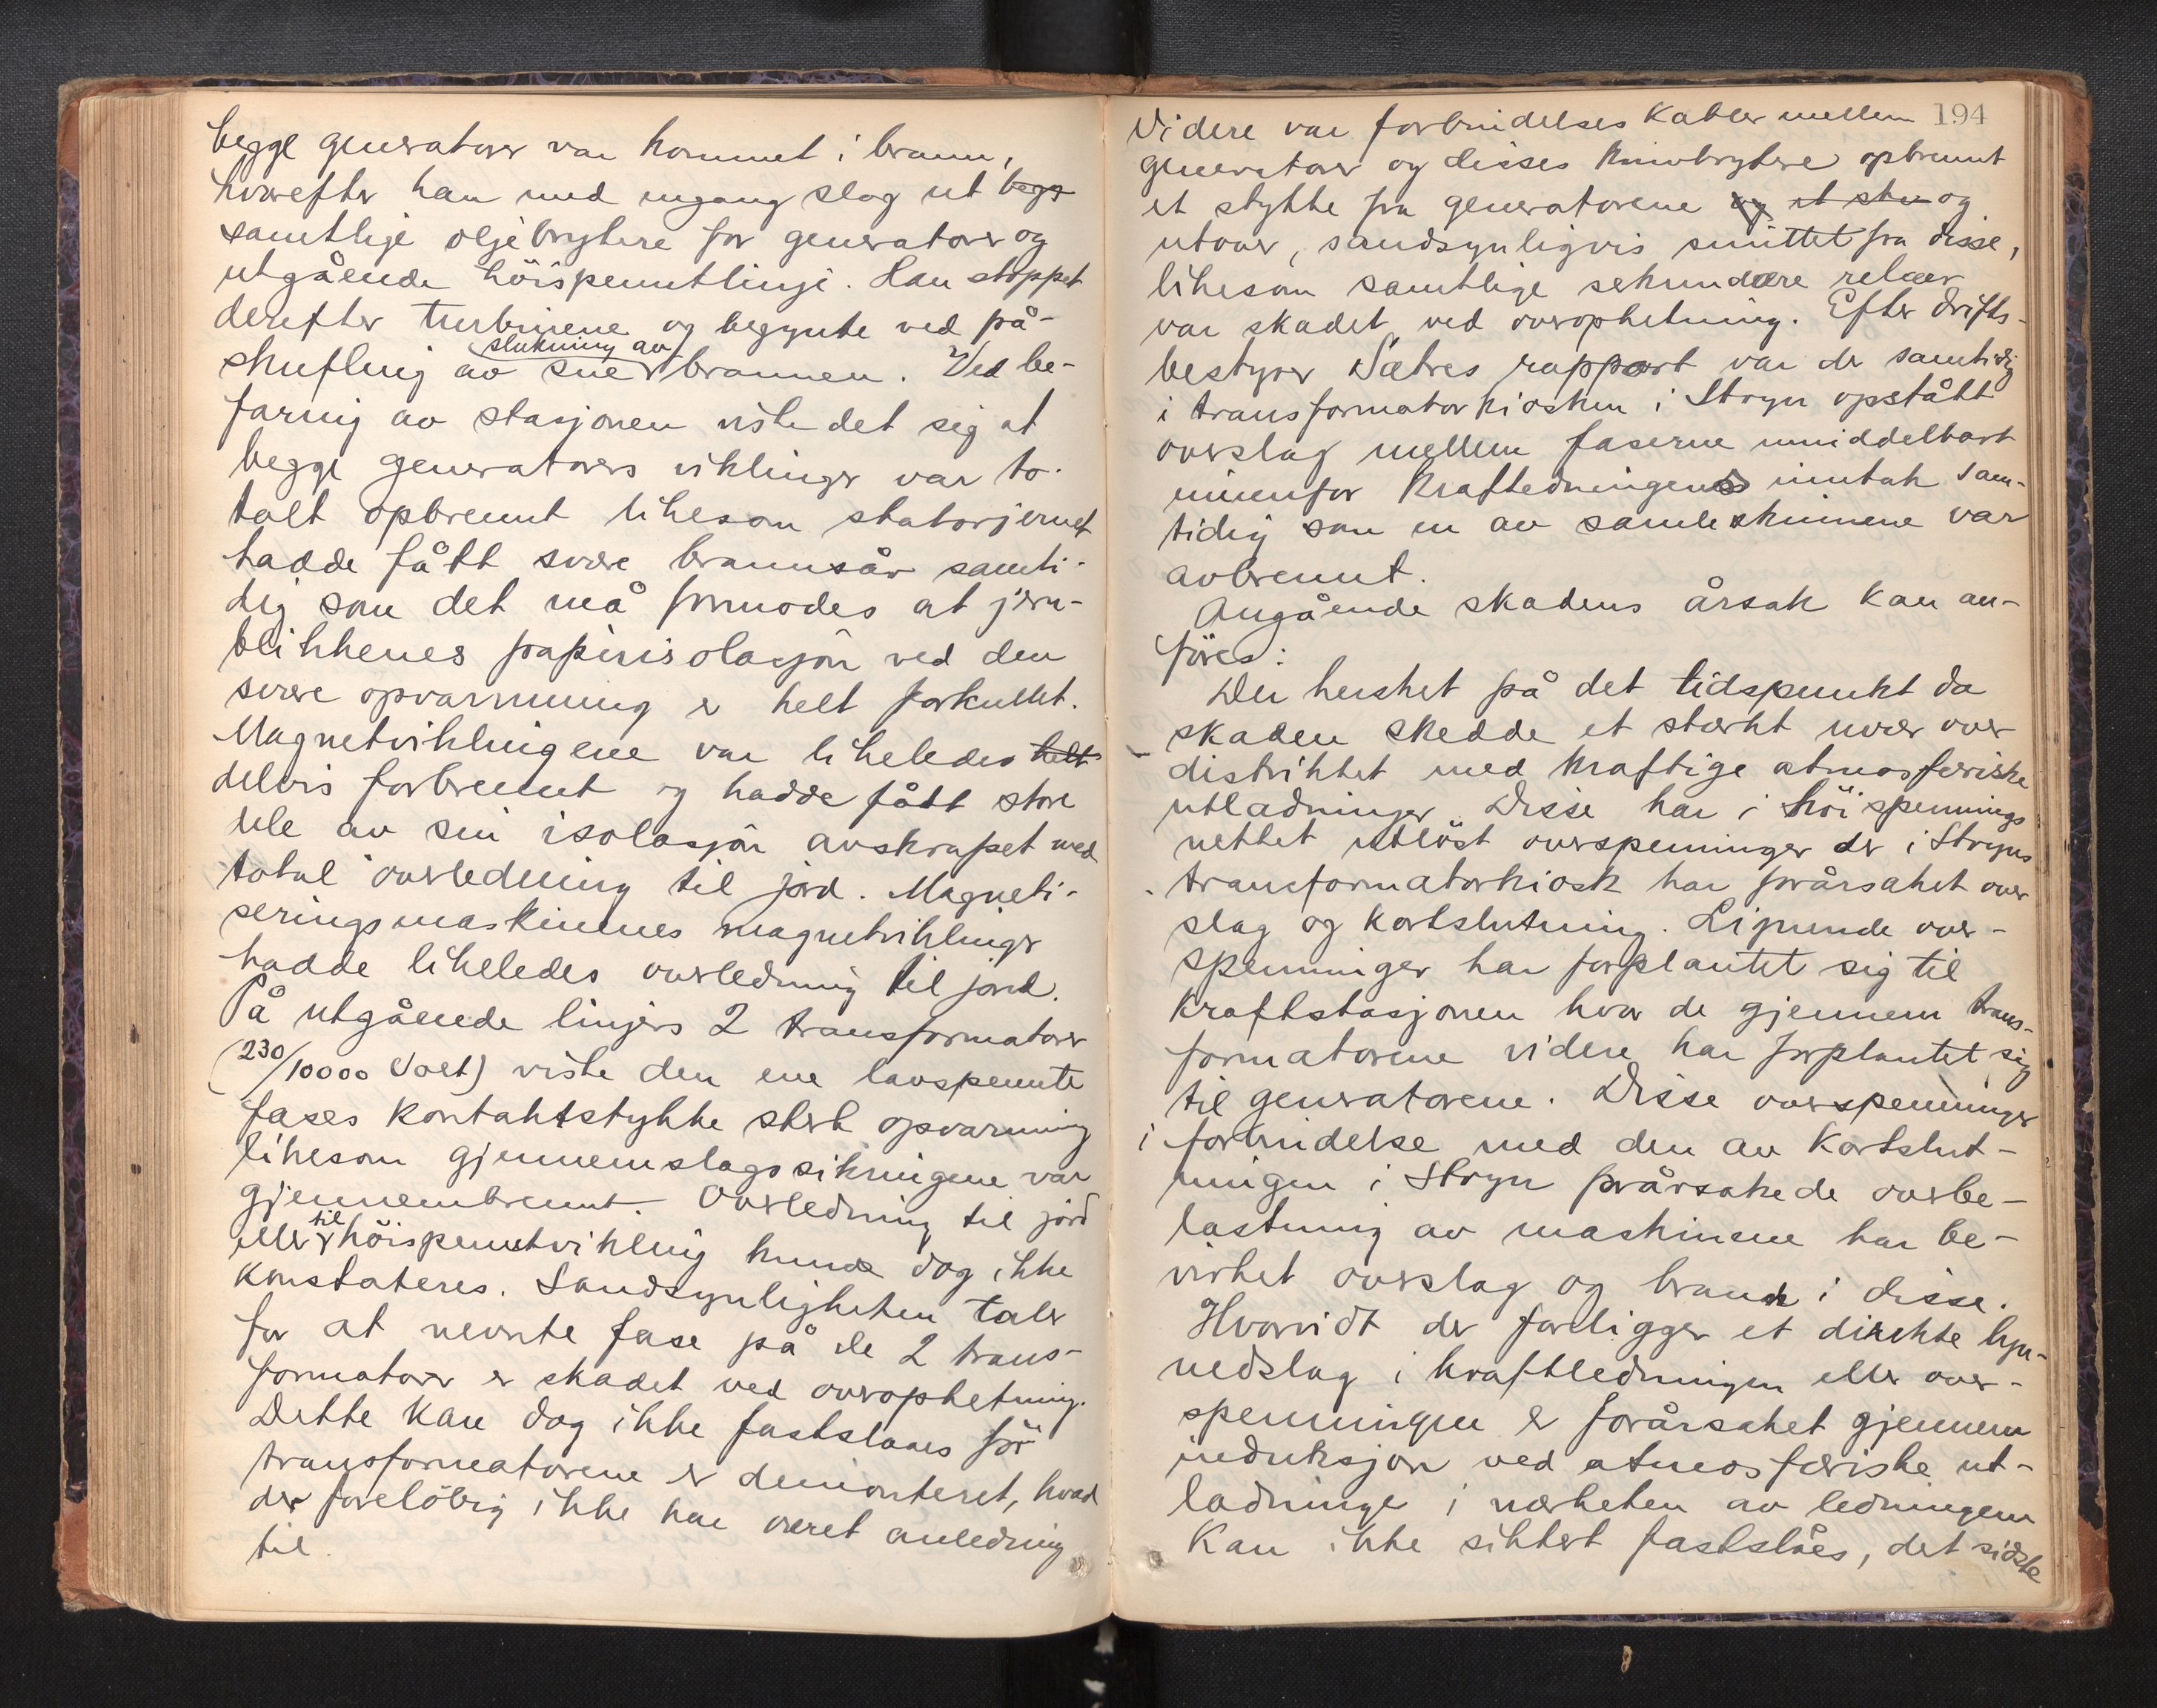 begge generatorer var kommet i brann,
hvorefter han med engang slog ut begg
samtlige oljebrytere for generatorer og
utgående höispenntlinje. Han stoppet
derefter turbinene og begynte ved på-
slukning av
skufling av sne brannen. Ved be-
faring av stasjonen viste det sig at
begge generatorers viklinger var to-
talt opbrennt likesom statorjernet
hadde fått svære brannsår samti-
dig som det må formodes at jern-
blikkenes papirisolasjon ved den
svære opvarmning er helt forkullet.
Magnetviklingene var likeledes helt
delvis forbrennt og hadde fått store
dele av sin isolasjon avskrapet med
total overledning til jord. Magneti-
seringsmaskinenes magnetviklinger
hadde likeledes overledning til jord.
På utgående linjers 2 transformatorer
(230/10000 Volt) viste den ene lavspennte
fases kontaktstykke sterk opvarmning
likesom gjennemslagssikringene var
gjennembrennt. Overledning til jord
til
eller höispenntvikling kunde dog ikke
konstateres. Sandsynligheten taler
for at nevnte fase på de 2 trans-
formatorer er skadet ved overophetning.
Dette kan dog ikke fastslaaes för
transformatorene er demonteret, hvad
der foreløbig ikke har været anledning
til.
194
Videre var forbindelses kabler mellem
generatorer og disses knivbrytere opbrennt
et stykke fra generatorene og et stu og
utover, sandsynligvis smittet fra disse,
likesom samtlige sekundære relæer
var skadet ved overophetning. Efter drifts-
bestyrer Sætres rapport var der samtidig
i transformatorkiosken i Stryn opstått
overslag mellem faserne umiddelbart
innenfor kraftledningens inntak sam-
tidig som en av samleskinnene var
avbrennt.
Angående skadens årsak kan an-
föres:
Der hersket på det tidspunkt da
skaden skedde et stærkt uvær over
distriktet med kraftige atmosfæriske
utladninger. Disse har i höispennings
nettet utlöst overspenninger der i Stryns
transformatorkiosk har forårsaket over
slag og kortslutning. Lignende over-
spenninger har forplantet sig til
kraftstasjonen hvor de gjennem trans-
formatorene videre har forplantet sig
til generatorene. Disse overspenninger
i forbindelse med den av kortslut-
ningen i Stryn forårsakede overbe-
lastning av maskinene har be-
virket overslag og brann i disse.
Hvorvidt der foreligger et direkte lyn-
nedslag i kraftledningen eller over-
spenningen er forårsaket gjennem
induksjon ved atmosfæriske ut-
ladninge i nærheten av ledningene
kan ikke sikkert fastslåes, det sidste